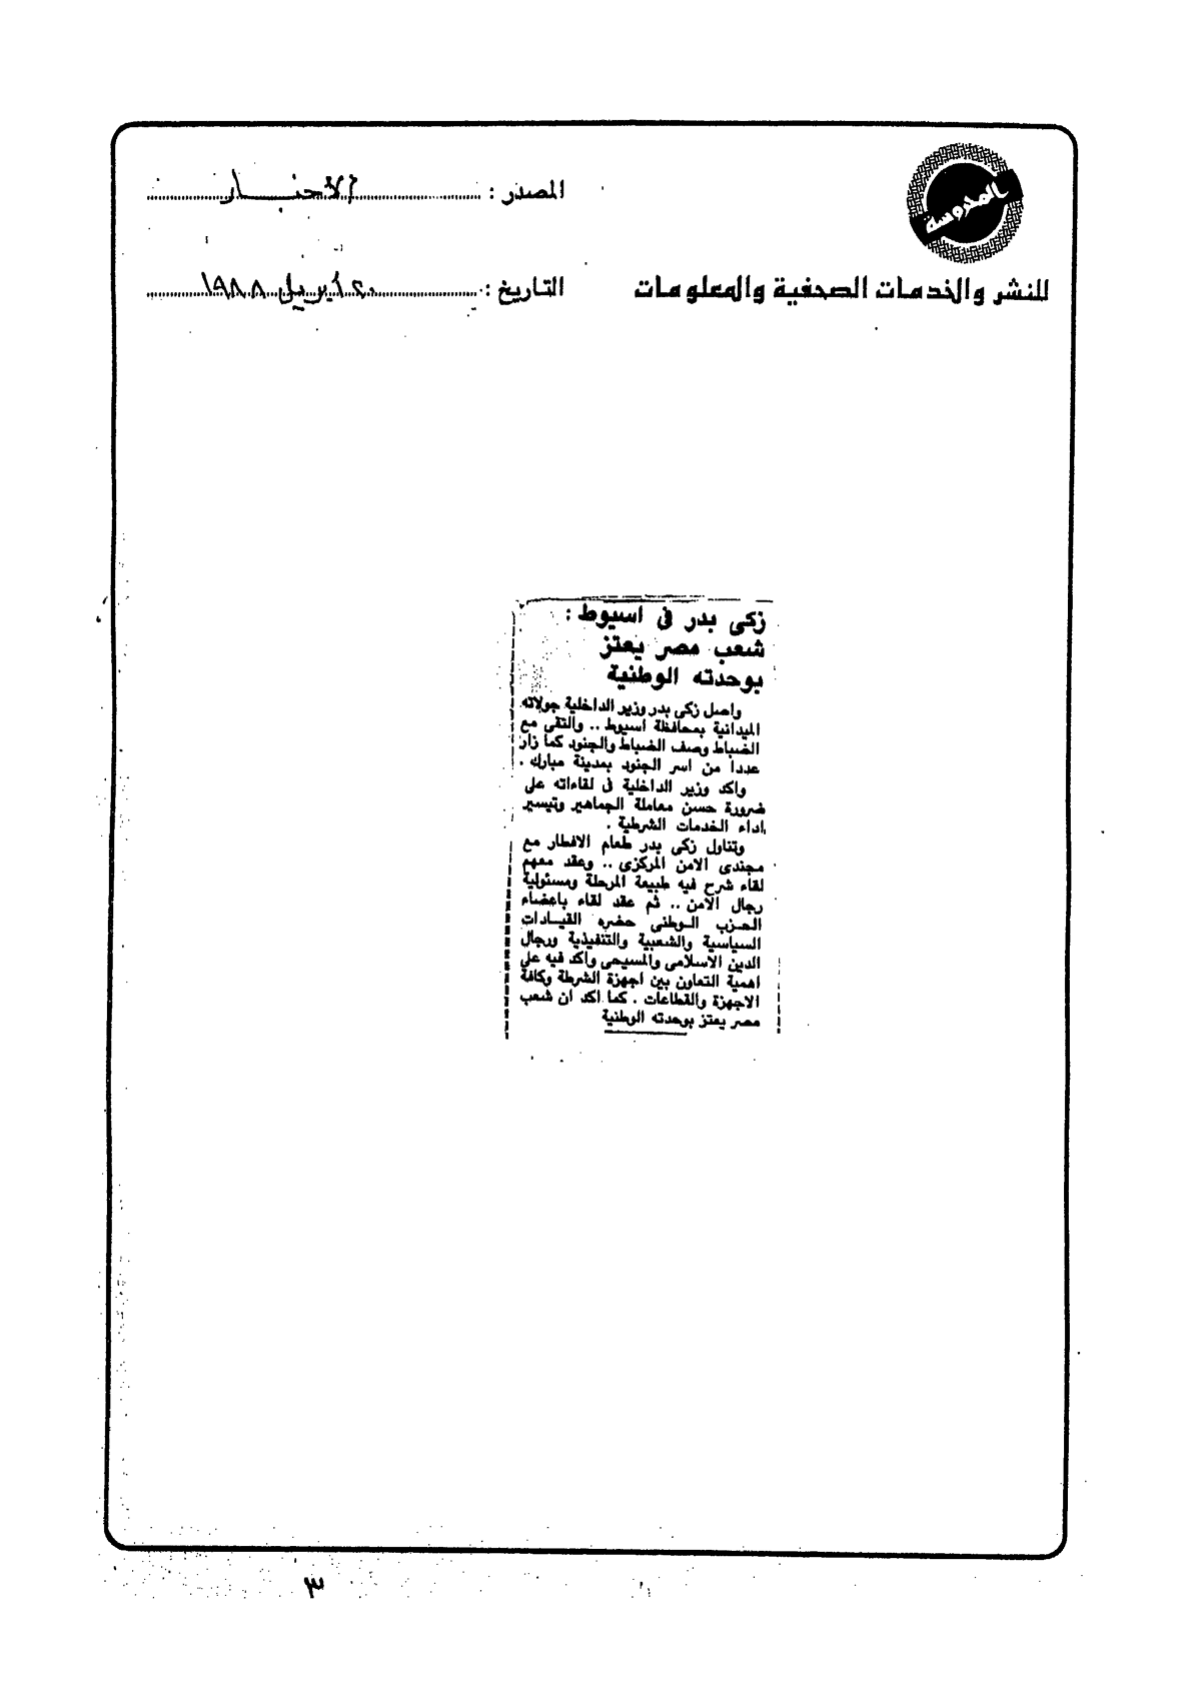 المحروسة
للنشر والخدمات الصحفية والمعلومات
المصدر : الأخبار
التاريخ : ٢٠ ابريل ١٩٨٨
زكى بدر فى اسيوط :
شعب مصر يعتز
بوحدته الوطنية
واصل زكى بدر وزير الداخلية جولاته
الميدانية بمحافظة اسيوط .. والتقى مع
الضباط وصف الضباط والجنود كما زار
عددا من اسر الجنود بمدينة مبارك .
واكد وزير الداخلية فى لقاءاته على
ضرورة حسن معاملة الجماهير وتيسير
اداء الخدمات الشرطية .
وتناول زكى بدر طعام الافطار مع
مجندى الامن المركزى .. وعقد معهم
لقاء شرح فيه طبيعة المرحلة ومسئولية
رجال الامن .. ثم عقد لقاء باعضاء
الحزب الوطنى حضره القيادات
السياسية والشعبية والتنفيذية ورجال
الدين الاسلامى والمسيحى واكد فيه على
اهمية التعاون بين اجهزة الشرطة وكافة
الاجهزة والقطاعات . كما اكد ان شعب
مصر يعتز بوحدته الوطنية
٣